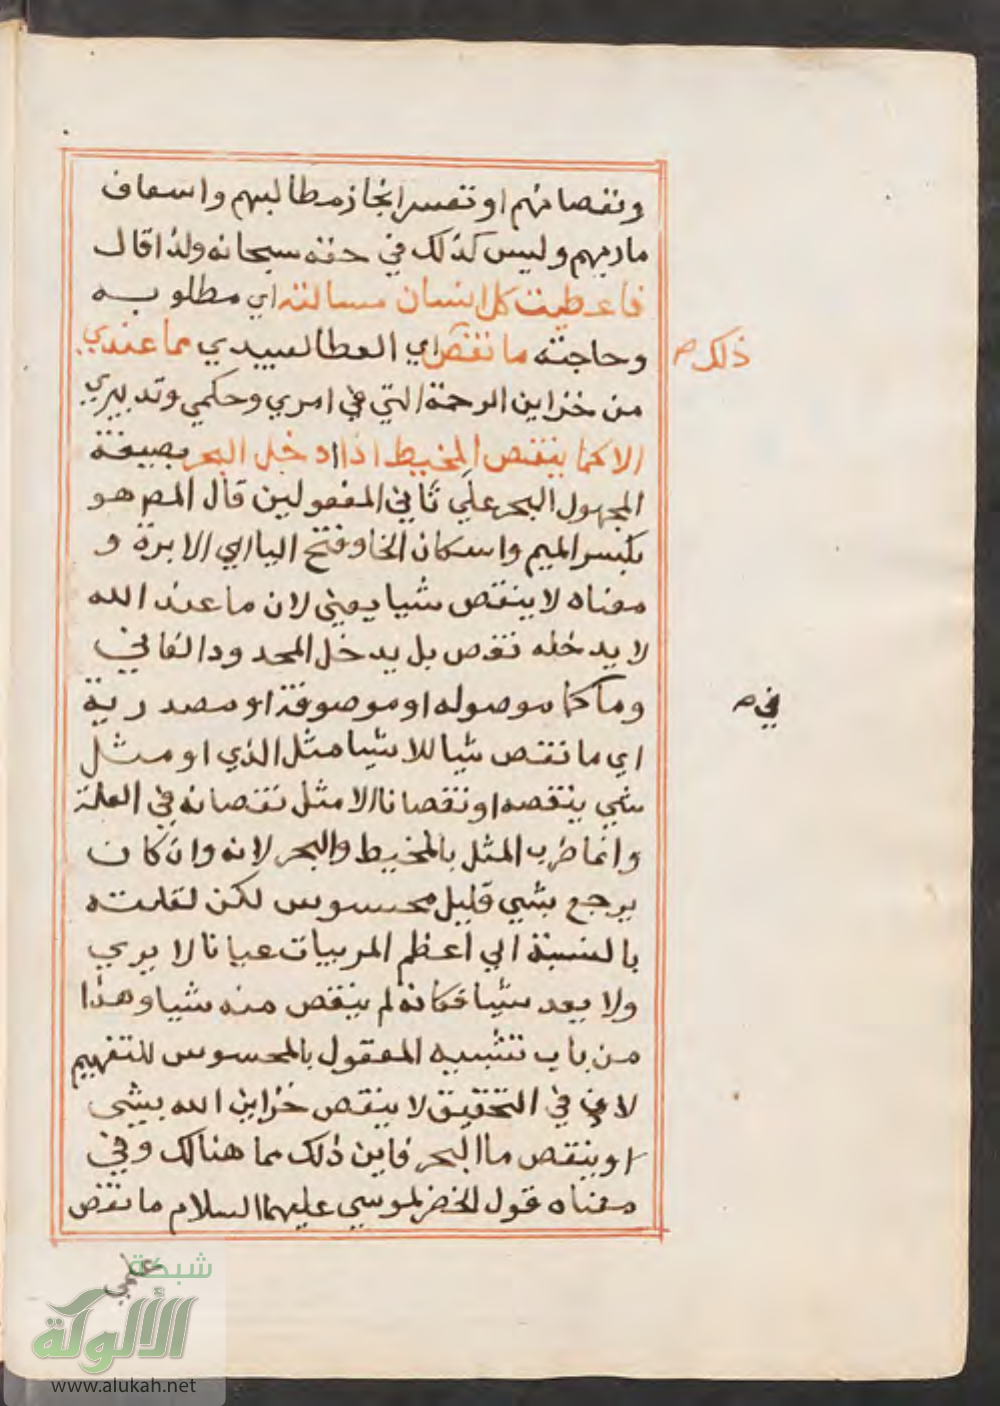 ونقصانهم او تعسر انجاز مطالبهم واسعاف
ماربهم وليس كذلك في حقه سبحانه ولذا قال
فاعطيت كل انسان مسالته اي مطلوبه
وحاجته ما نقص اي العطا لعبيدي مما عندي
ذلك صح
من خزاين الرحمة التي في امري وحكمي وتدبيري
الا كما ينقص المخيط اذا ادخل البحر بصيغة
المجهول البحر علي ثاني المفعولين قال المص هو
بكسر الميم واسكان الخا وفتح اليا اي الابرة و
معناه لا ينقص شيا يعني لان ما عند الله
لا يدخله نقص بل يدخل المحدود الفاني
وما كما موصوله او موصوفة او مصدرية
في صح
اي ما نقص شيا للاشيا مثل الذي او مثل
شي ينقصه او نقصانا الا مثل نقصانه في القلة
وانما ضرب المثل بالمخيط والبحر لانه وان كان
يرجع بشي قليل محسوس لكن لقلته
بالنسبة الي اعظم المربيات عيانا لا يري
ولا يعد شيا فكانه لم ينقص منه شيا وهذا
من باب تشبيه المعقول بالمحسوس للتفهيم
لان في التحقيق لا ينقص خزاين الله بشي
او ينقص ما البحر فاين ذلك مما هنالك وفي
معناه قول الخضر لموسي عليهما السلام ما نقص
علمي
شبكة
الألوكة
www.alukah.net